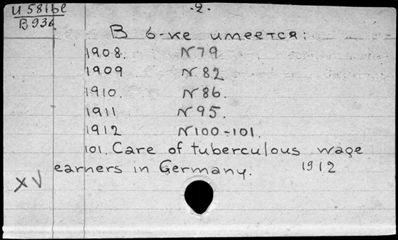 И 5816е
В 936
-2-
В б-ке имеется:
1908. N 79
1909 N 82
1910. N 86.
1911 N 95.
1912 N 100-101.
101. Care of tuberculous wage
earners in Germany. 1912
XV